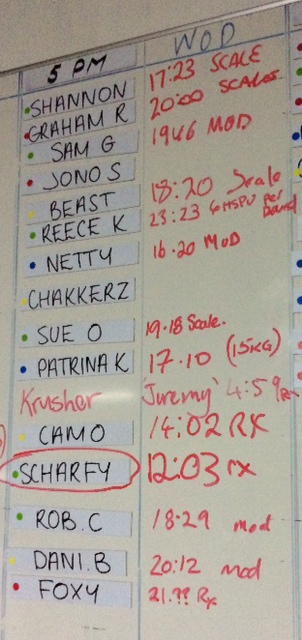 5 PM WOD
SHANNON 17:23 SCALE
GRAHAM R 20:00 SCALES
SAM G 1946 MOD
JONO S
BEAST 18:20 Scale
REECE K 23:23 6 HSPU per Round
NETTY 16.20 MOD
CHAKKERZ
SUE O 19.18 Scale.
PATRINA K 17.10 (15KG)
Krusher 'Juremy' 4:59 Rx
CAMO 14:02 RX
SCHARFY 12:03 rx
ROB.C 18:29 mod
DANI.B 20:12 mod
FOXY 21.?? Rx